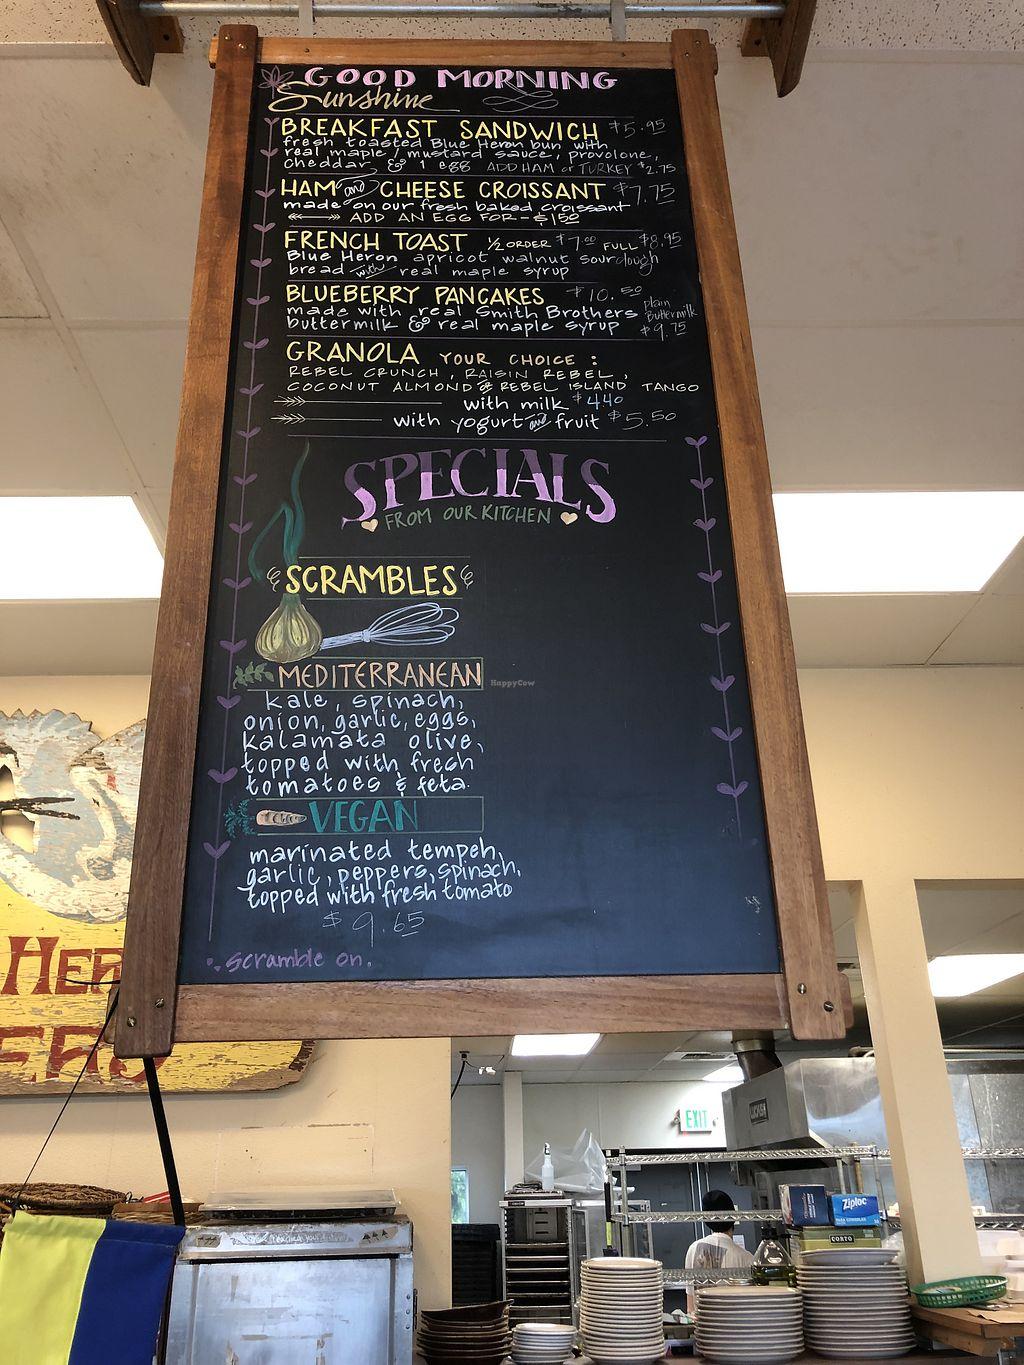 GOOD MORNING
Sunshine
BREAKFAST SANDWICH $5.95
fresh toasted Blue Heron bun with
real maple / mustard sauce, provolone,
cheddar & 1 egg ADD HAM or TURKEY $2.75
HAM and CHEESE CROISSANT $7.75
made on our fresh baked croissant
ADD AN EGG FOR - $1.50
FRENCH TOAST ½ ORDER $7.00 FULL $8.95
Blue Heron apricot walnut sourdough
bread with real maple syrup
BLUEBERRY PANCAKES $10.50
made with real Smith Brothers plain Buttermilk
buttermilk & real maple syrup $9.75
GRANOLA YOUR CHOICE :
REBEL CRUNCH, RAISIN REBEL,
COCONUT ALMOND or REBEL ISLAND TANGO
with milk $4.40
with yogurt and fruit $5.50
SPECIALS
FROM OUR KITCHEN
SCRAMBLES
MEDITERRANEAN
HappyCow
kale, spinach,
onion, garlic, eggs,
kalamata olive,
topped with fresh
tomatoes & feta.
VEGAN
marinated tempeh,
garlic, peppers, spinach,
topped with fresh tomato
$9.65
scramble on.
HER
EXIT
Ziploc
CORTO